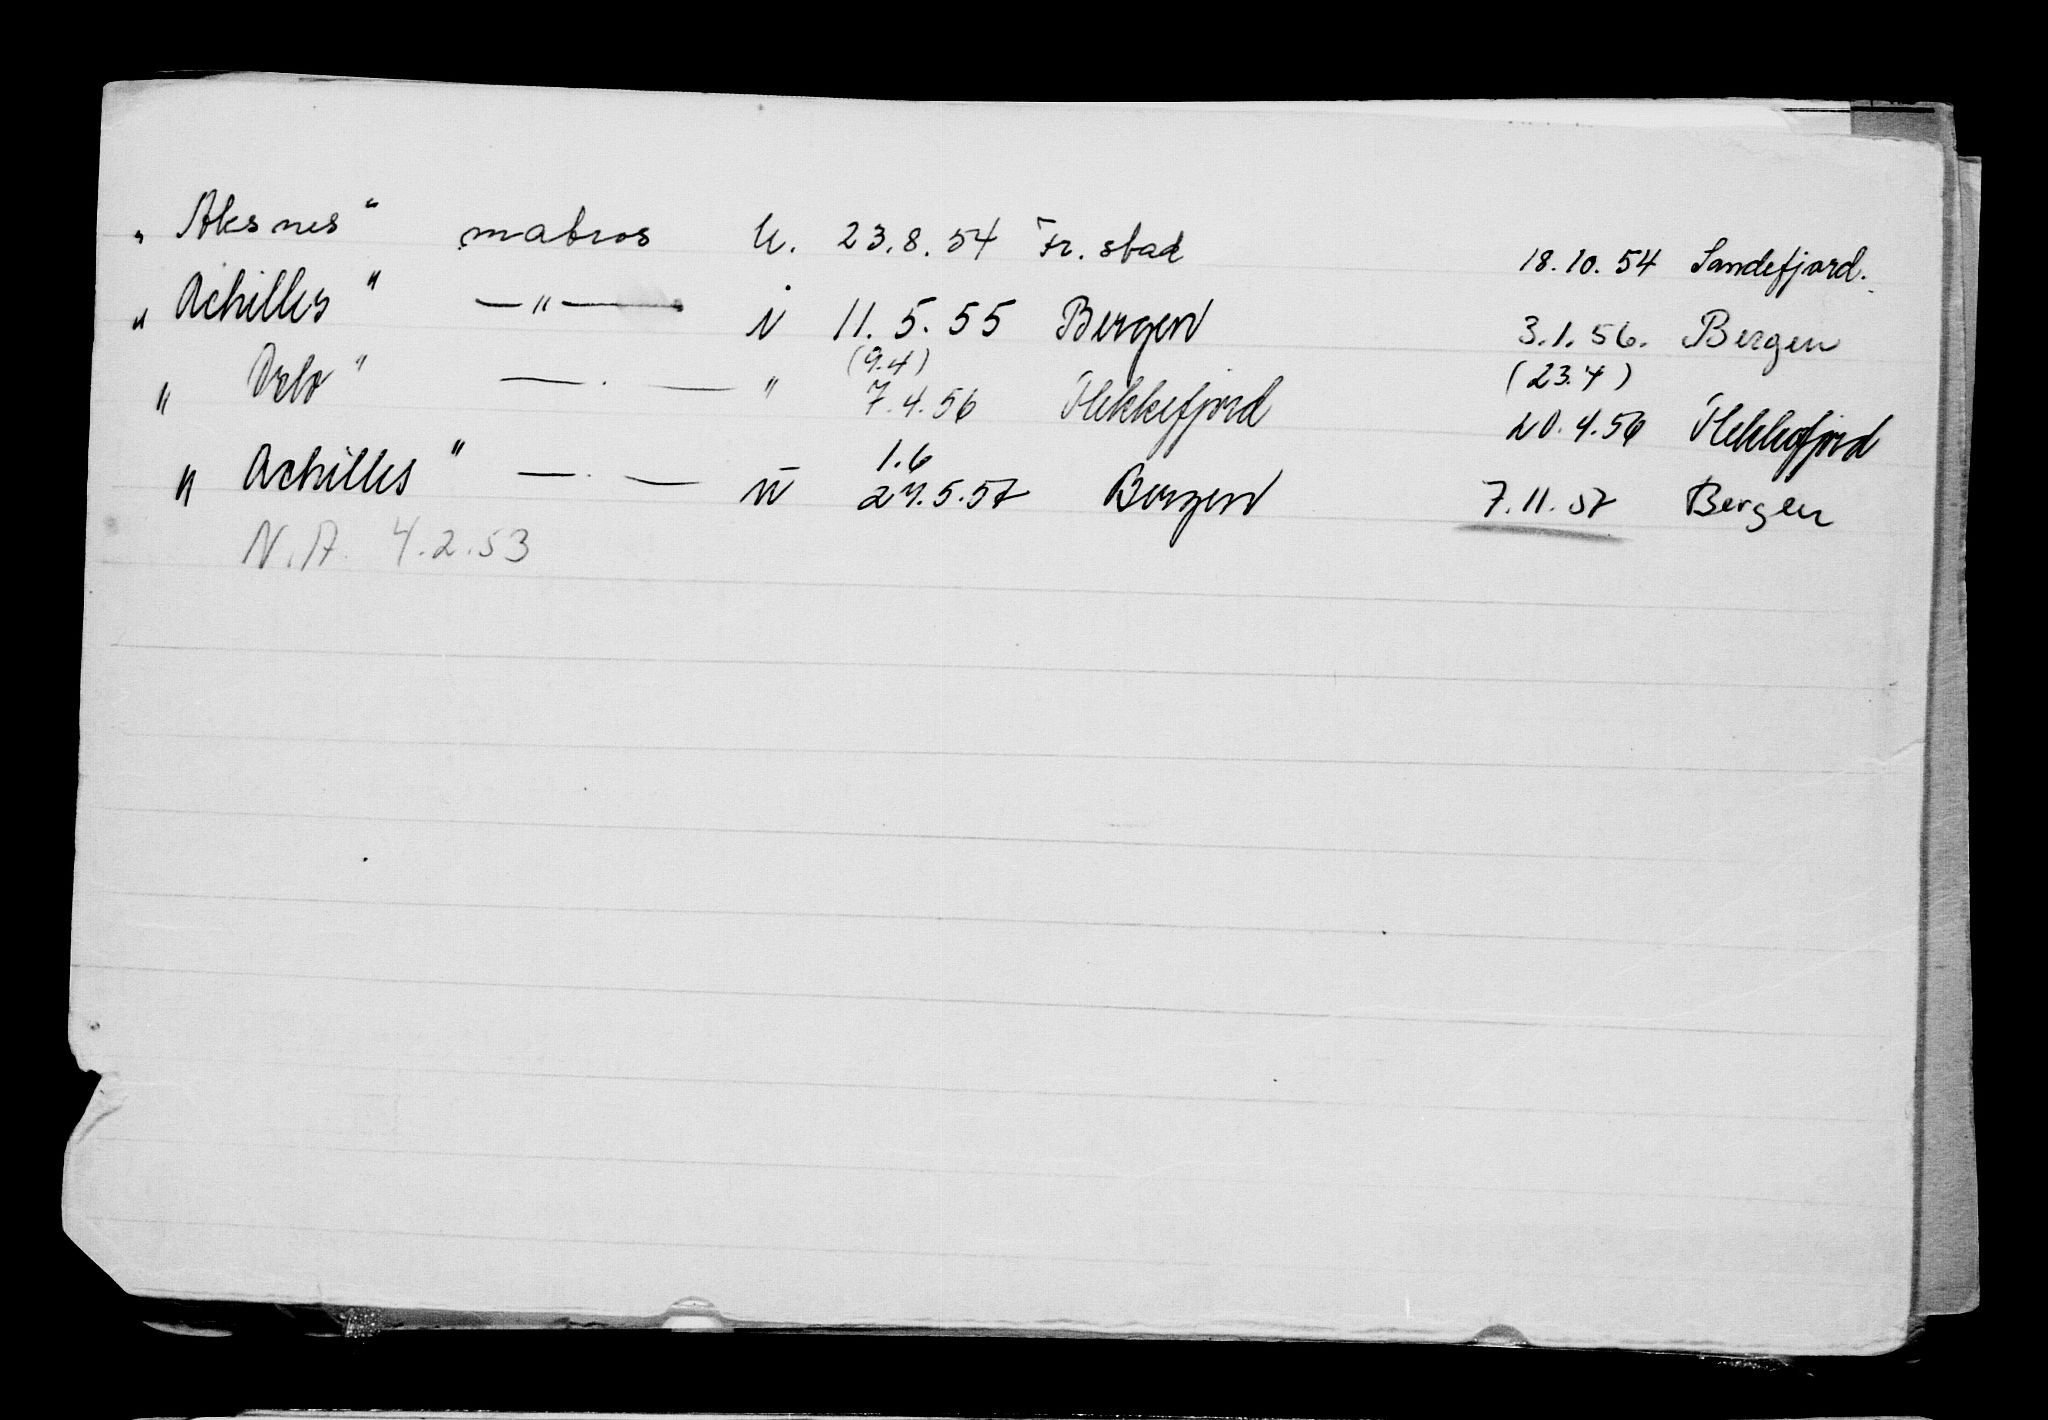 „ Aksnes “ matros U. 23.8.54 Fr. stad 18.10.54 Sandefjord.
„ Achilles “ — " — 11. 5. 55 Bergen 3.1.56. Bergen
(9.4) (23.4)
„ " — . — " 7.4.56 Flekkefjord 20.4.56 Flekkefjord
1.6
„ Achilles " — . — 27.5.57 Bergen 7.11.57 Bergen
N.A. 4.2.53